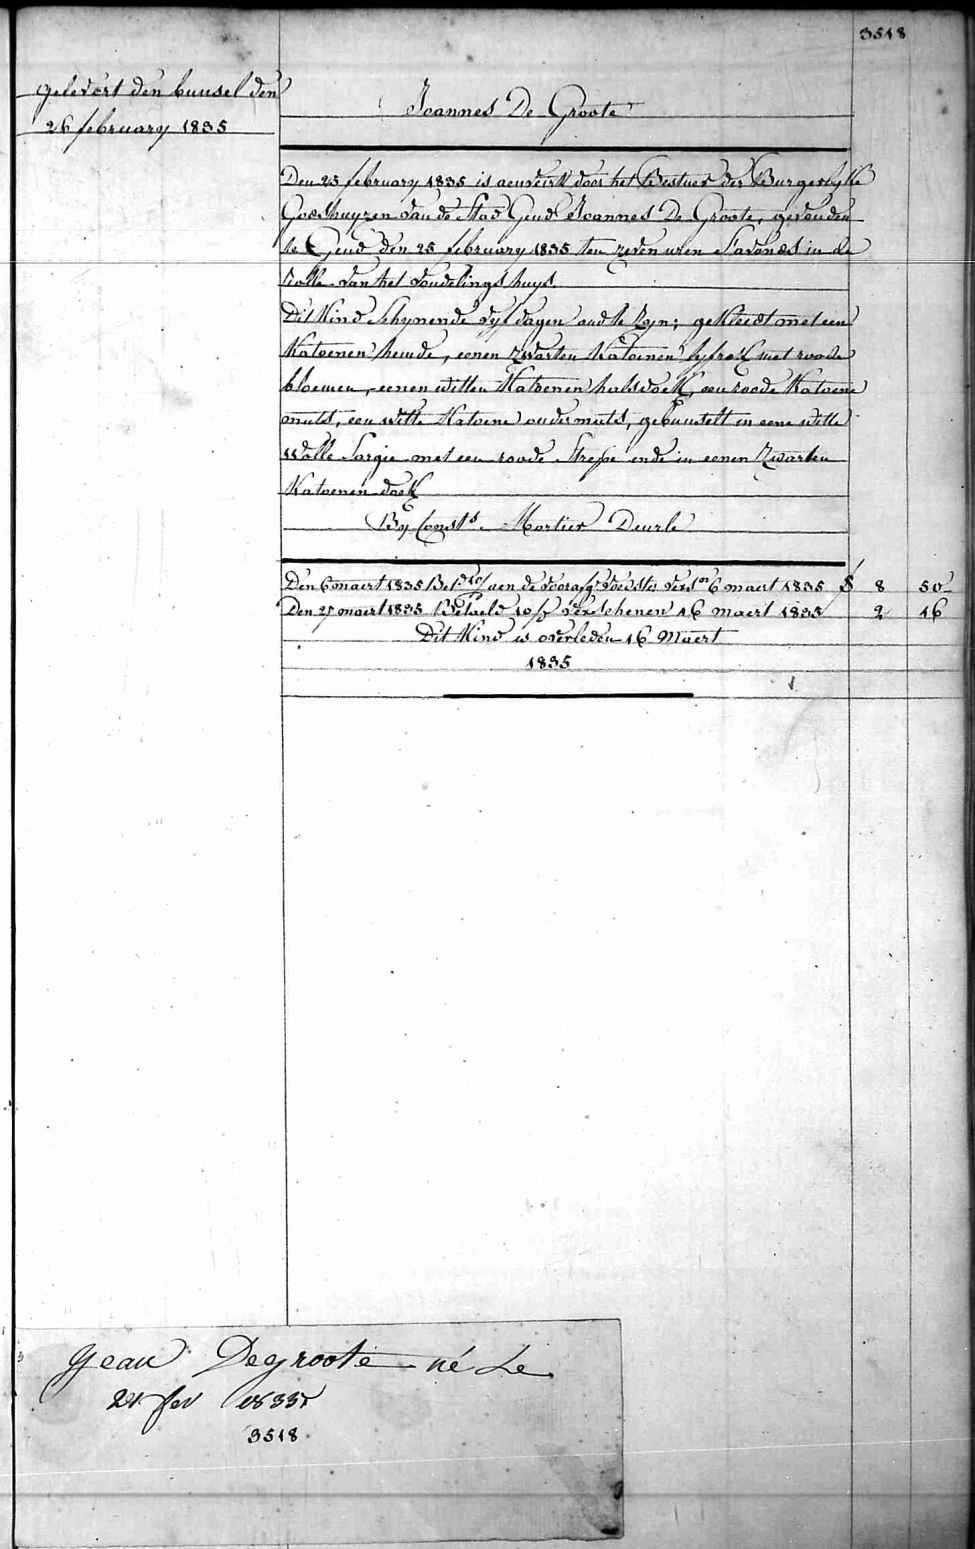 3518
gelevert den bunsel den
26 february 1835
Joannes De Groote
Den 25 february 1835 is aenveird door het Bestuer der Burgerlyke
Godshuyzen van de Stad Gend Joannes De Groote, gevonden
te Gend den 25 february 1835 ten zeven uren S'avonds in de
rolle van het vondelings huys.
Dit Kind schynende vyf dagen oud te zyn; gekleedt met een
Katoenen hemde, eenen zwarten Katoenen lyfrok met roode
bloemen, eenen witten Katoenen halsdoek, een roode Katoene
muts, een witte Katoene ondermuts, gebunselt in eene witte
wolle Sargie met een roode Strepe ende in eenen zwarten
Katoenen doek
By Const. Mortier Deurle
Den 6 maert 1835 Bet. aen de voedster vers. 6 maert 1835 8 50
Den 27 maert 1835 Betaeld 10 verschenen 16 maert 1835 2 16
Dit Kind is overleden 16 Maert
1835
Jean Degroote né Le
21 fev 1835
3518